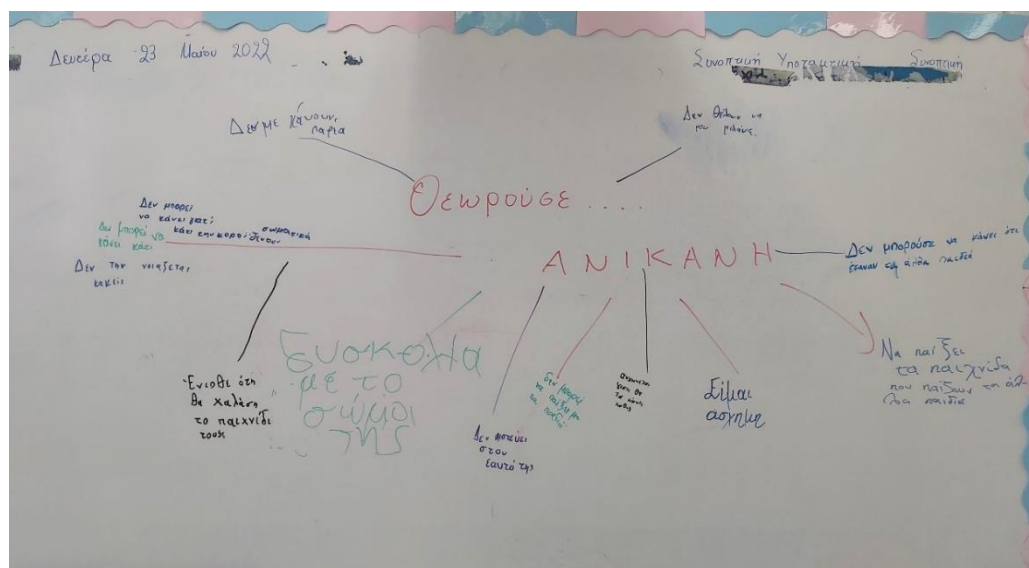 Δευτέρα 23 Μαΐου 2022
Συνοπτική Υποτακτική Συνοπτική
Δεν με κάνουν
παρέα
Δεν θέλουν να
μου μιλάνε.
Θεωρούσε ....
ΑΝΙΚΑΝΗ
Δεν μπορεί
να κάνει
κάτι
σωματικά
Δεν μπορεί να
κάνει κάτι
Δεν την νοιάζεται
κανείς
Δεν μπορούσε να κάνει ότι
έκαναν τα άλλα παιδιά
Ένιωθε ότι
θα χαλάσει
το παιχνίδι
τους
Δυσκολία
με το
σώμα
της
Δεν πιστεύει
στον
εαυτό της
δεν μπορεί
να παίξει με
τα παιδιά
Είμαι
άσχημη
Να παίξει
τα παιχνίδα
που παίζουν τα άλ
λα παιδια